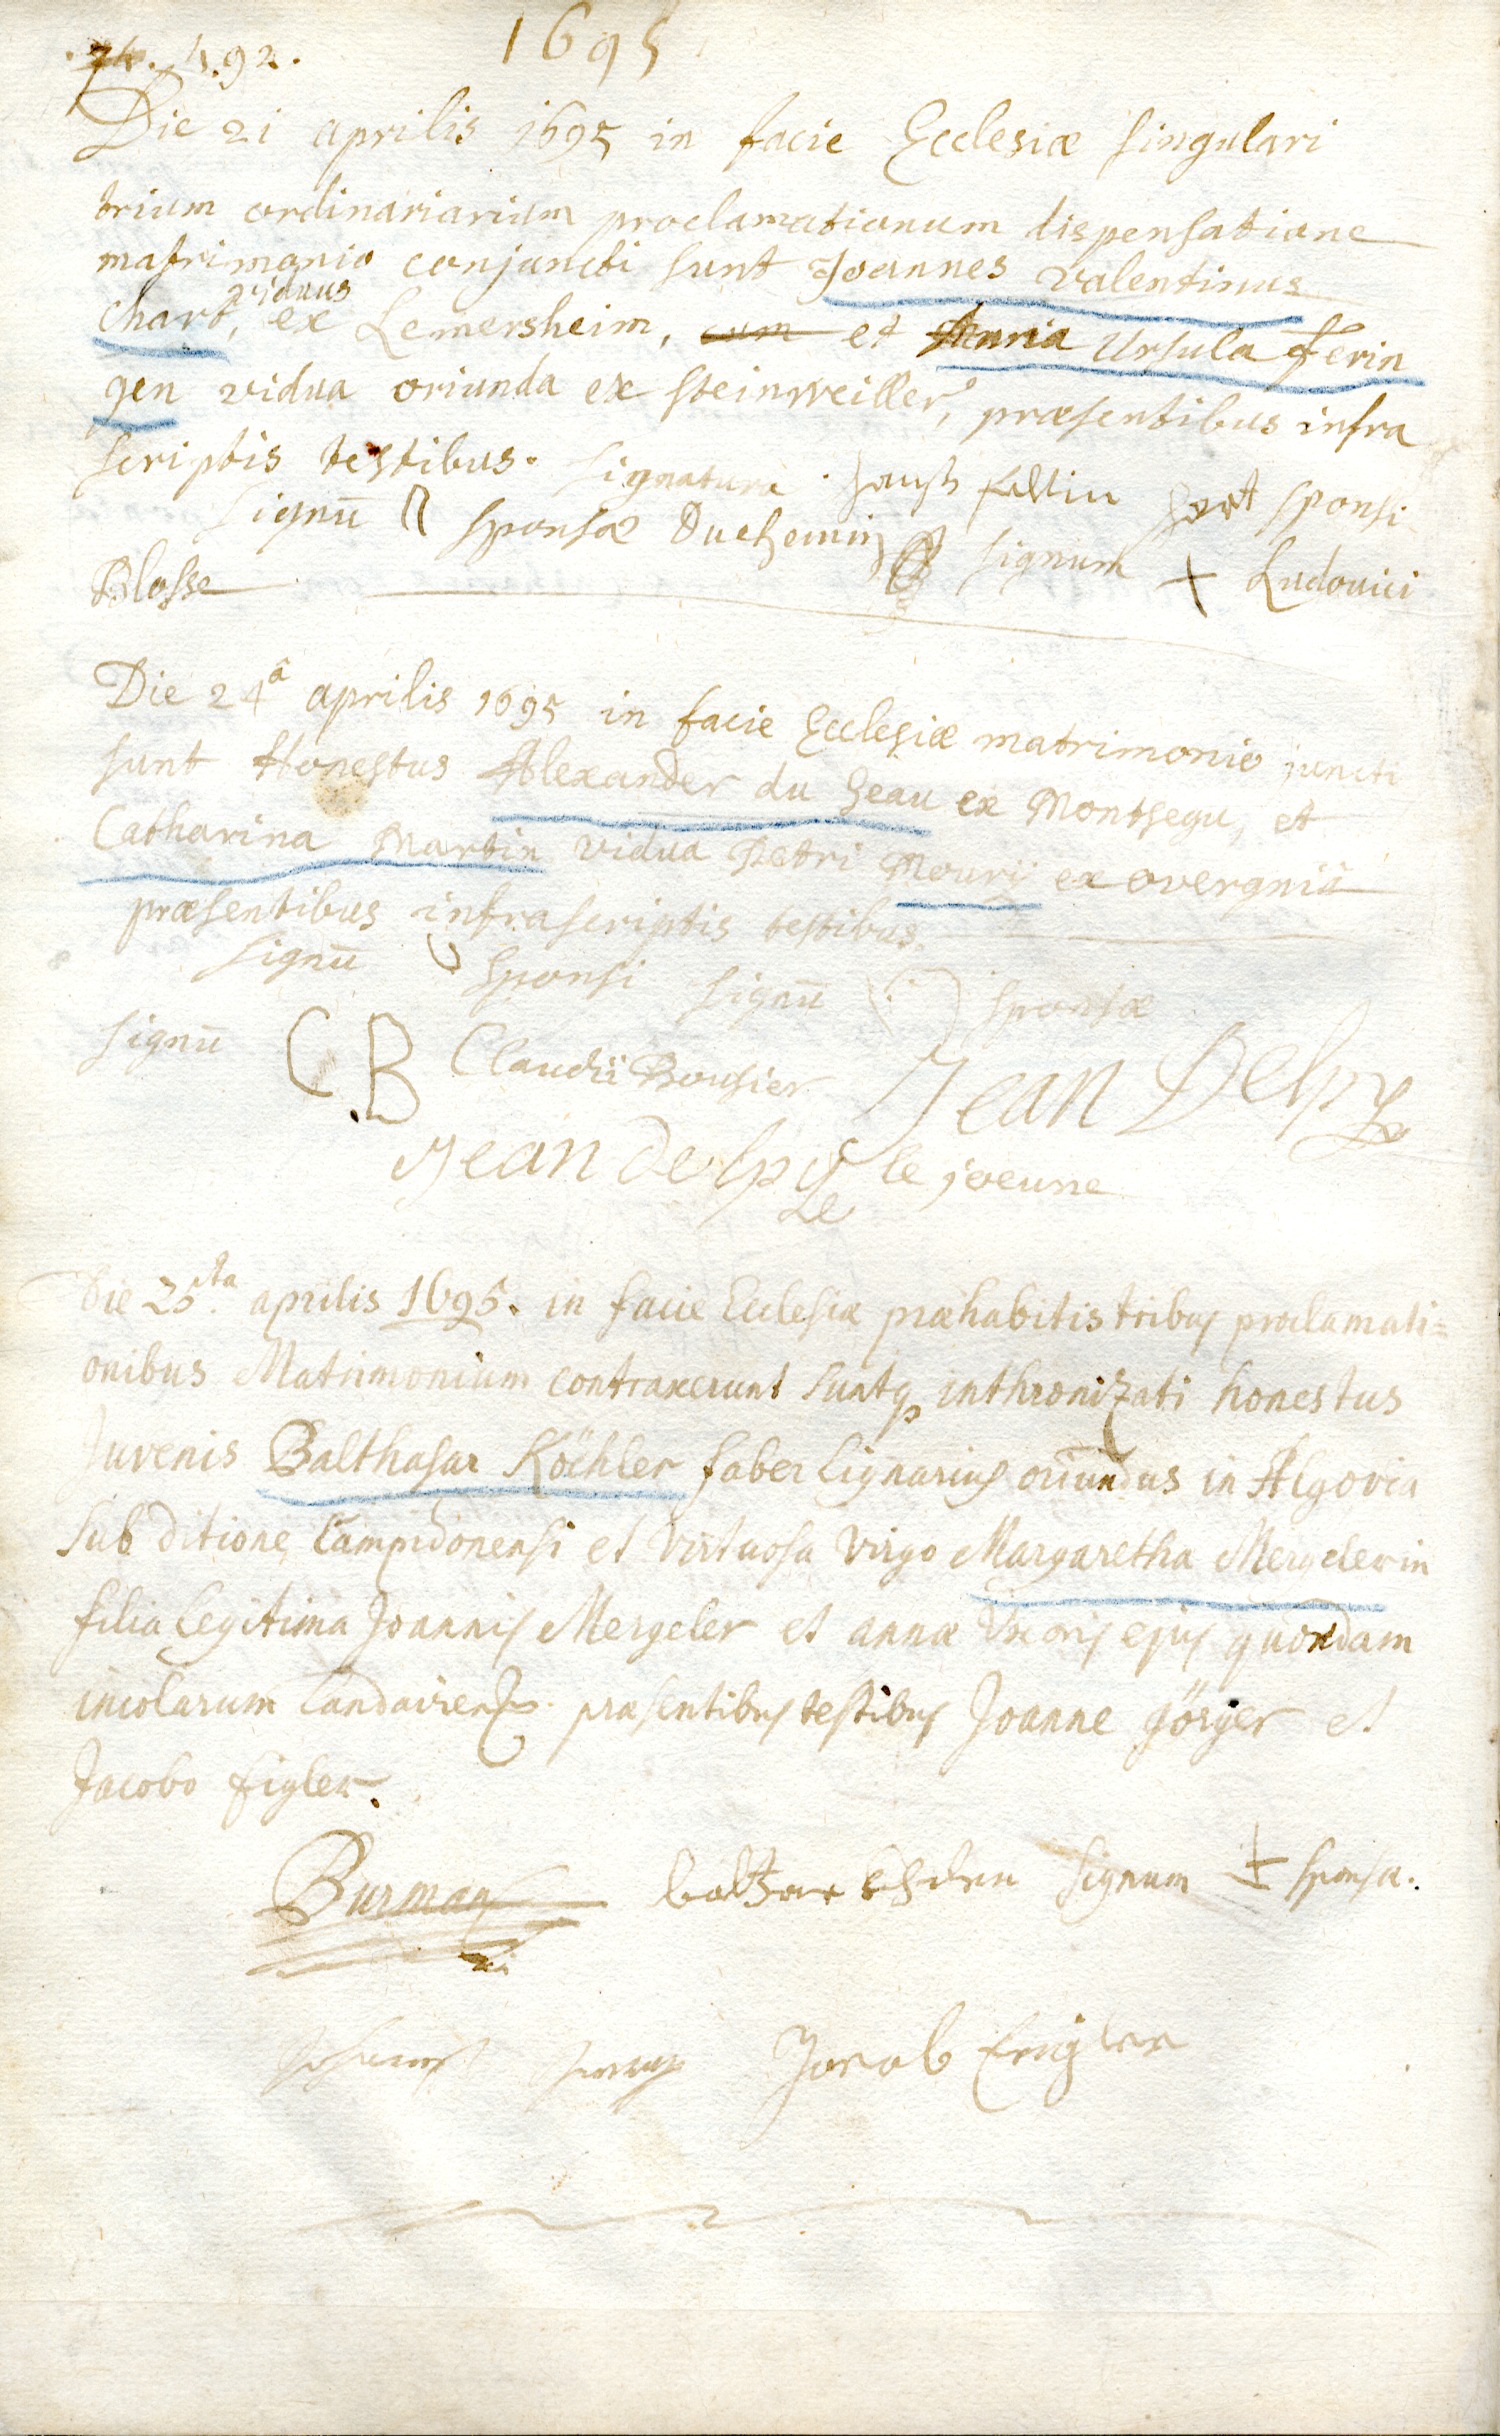 1695
4.92.
Die 21 aprilis 1695 in facie Ecclesiæ singulari
trium ordinariarium proclamationum dispensatione
matrimonio conjuncti sunt Joannes valentinus
viduus
Chart, ex Lemersheim, cum et Anna Ursula ferin
gen vidua oriunda ex steinweiller, præsentibus infra
scriptis testibus. signatura sponsi
signū sponsæ Duchemin signum + Ludovici
Blosse
Die 24â aprilis 1695 in facie Ecclesiæ matrimonio iuncti
sunt Honestus Alexander du geau ex Montsegu, et
Catharina Martin vidua Petri Moury ex overgniâ
præsentibus infrascriptis testibus.
signū sponsi signū sponsæ
signū CB Claudii Bousier Jean Delpy
Jean delpy le joeune
Die 25ta aprilis 1695. in facie Ecclesiæ præhabitis tribus proclamati=
onibus Matrimonium contraxerunt suntq inthronizati honestus
Juvenis Balthasar Köchler faber lignarius oriundus in Algovia
sub ditione Campidonensi et virtuosa virgo Margaretha Mergelerin
filia legitima Joannis Mergeler et annæ Uxoris ejus quondam
incolarum præsentibus testibus Joanne görger et
Jacobo figler.
Burman signum + sponsa.
Jacob